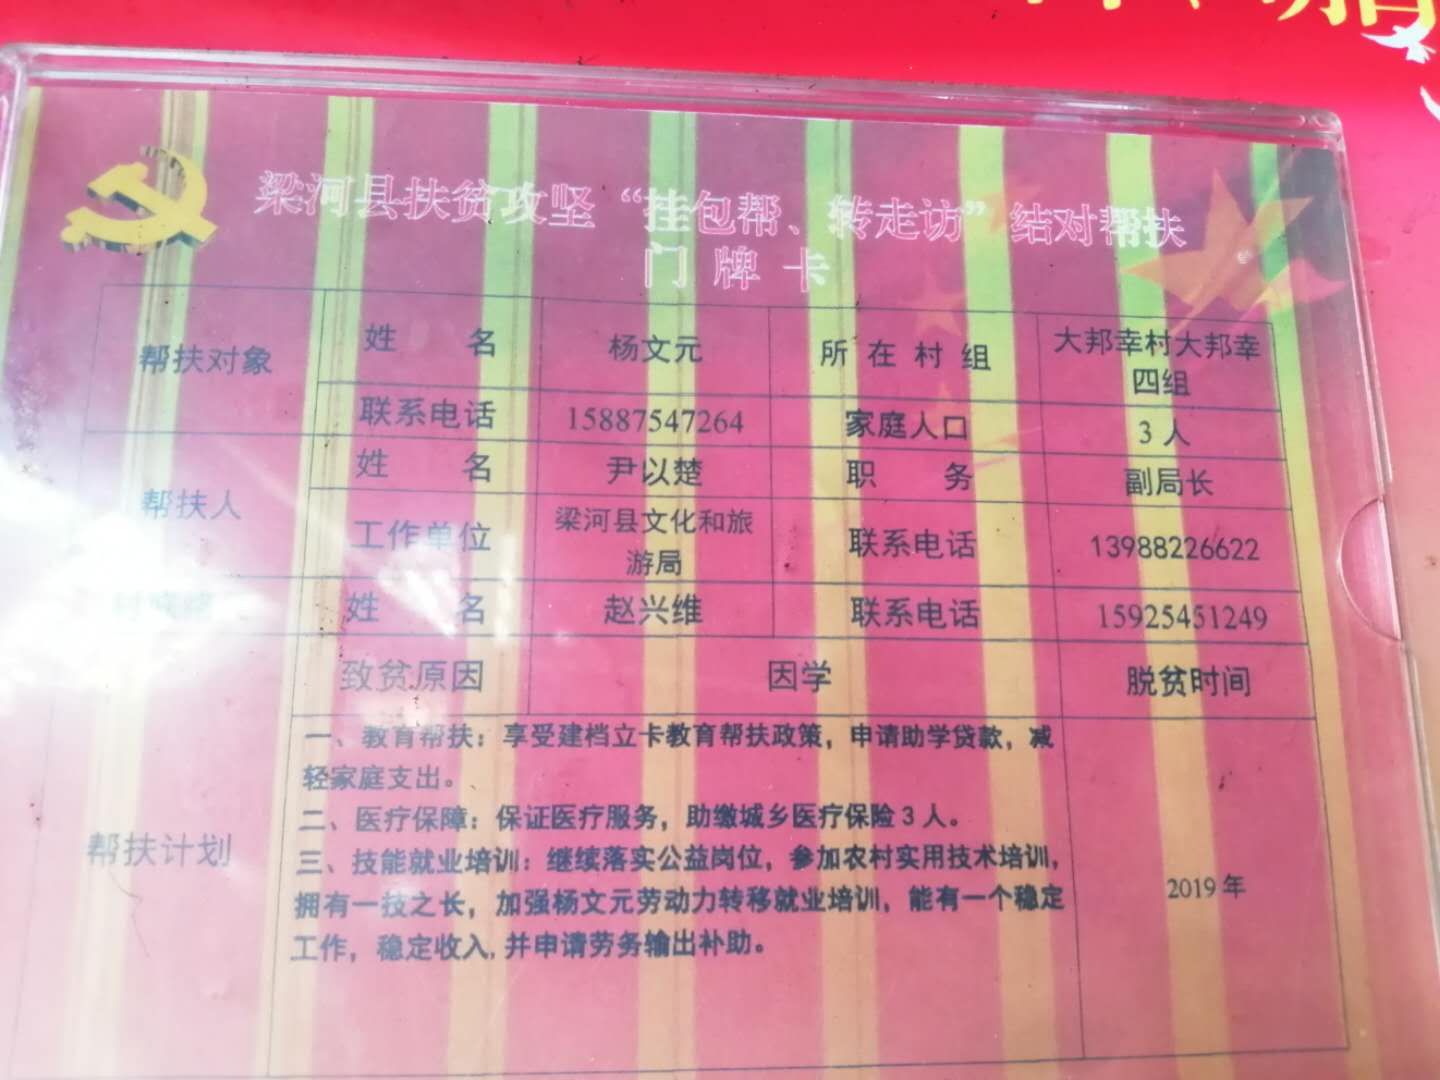 梁河县扶贫攻坚“挂包帮、转走访”结对帮扶
门 牌 卡
帮扶对象 姓 名 杨文元 所 在 村 组 大邦幸村大邦幸
四组
联系电话 15887547264 家庭人口 3 人
帮扶人 姓 名 尹以楚 职 务 副局长
工作单位 梁河县文化和旅
游局 联系电话 13988226622
姓 名 赵兴维 联系电话 15925451249
致贫原因 因学 脱贫时间
帮扶计划
一、教育帮扶：享受建档立卡教育帮扶政策，申请助学贷款，减
轻家庭支出。
二、医疗保障：保证医疗服务，助缴城乡医疗保险 3 人。
三、技能就业培训：继续落实公益岗位，参加农村实用技术培训，
拥有一技之长，加强杨文元劳动力转移就业培训，能有一个稳定
工作，稳定收入，并申请劳务输出补助。
2019 年